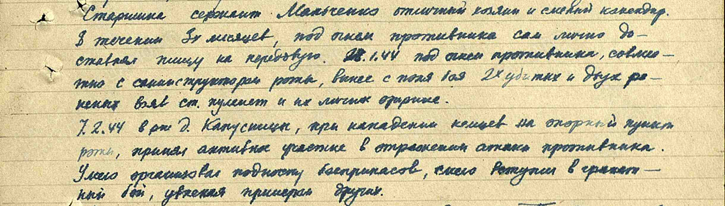 Старшина сержант Мальченко отличный хозяин и смелый командир.
В течении 3х месяцев, под огнем противника сам лично до-
ставлял пищу на передовую. 28.1.44 под огнем противника, совме-
стно с санинструктором роты, вынес с поля боя 2х убитых и двух ра-
неных взяв ст. пулемет и их личное оружие.
7.2.44 в рне д. Капустицы, при нападении немцев на опорный пункт
роты, принял активное участие в отражении атаки противника.
Умело организовал подноску боеприпасов, смело вступил в гранат-
ный бой, увлекая примером других.